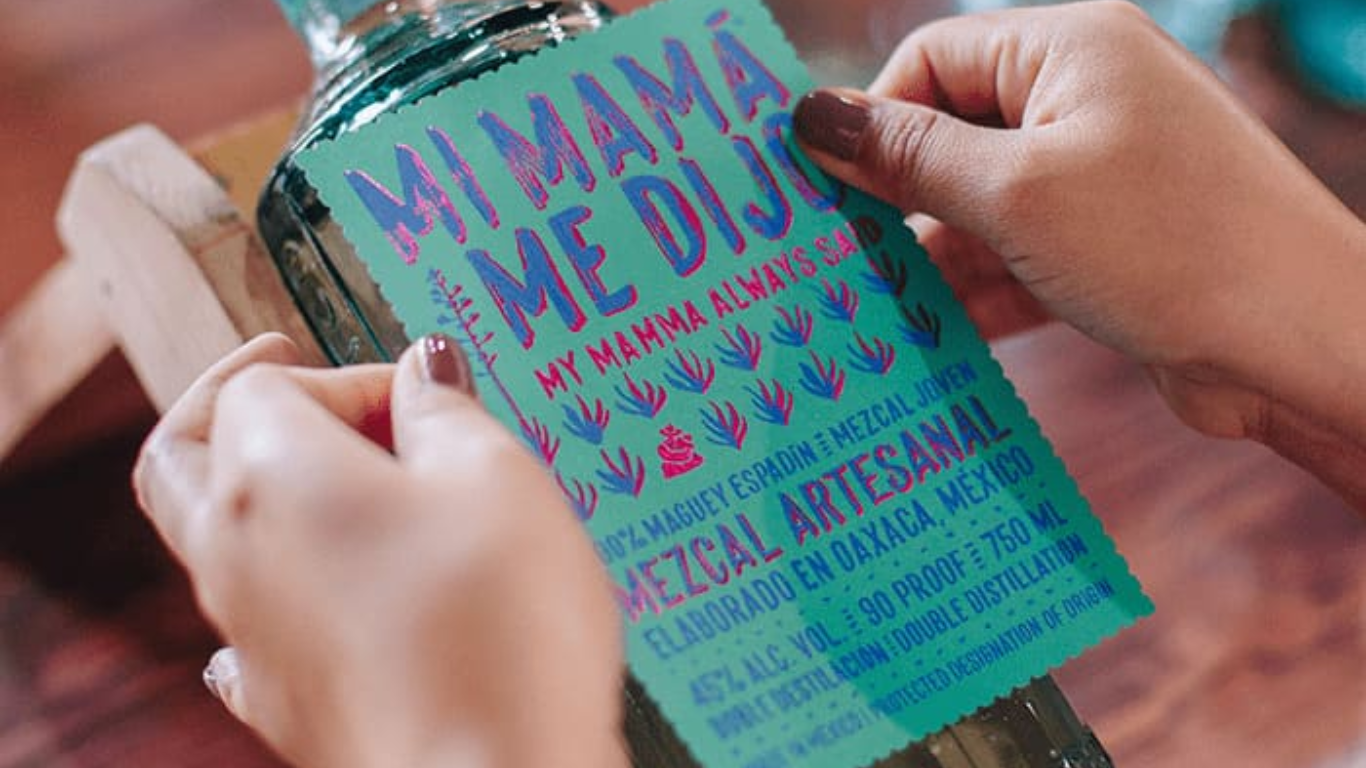 MI MAMÁ
ME DIJO
MY MAMMA ALWAYS SAID
100% MAGUEY ESPADÍN MEZCAL JOVEN
MEZCAL ARTESANAL
ELABORADO EN OAXACA, MÉXICO
45% ALC. VOL. 90 PROOF 750 ML
DOBLE DESTILACIÓN DOUBLE DISTILLATION
IN MEXICO | PROTECTED DESIGNATION OF ORIGIN